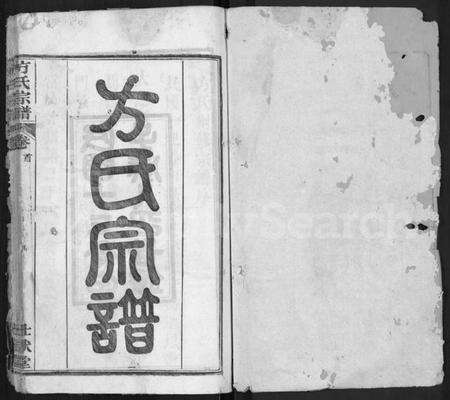 方氏宗譜
方氏宗譜
卷首